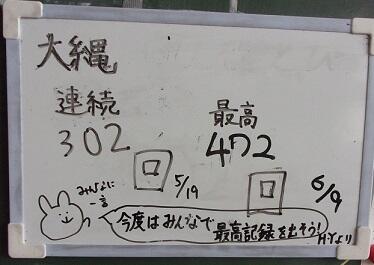 大縄
連続
302
回
5/19
最高
472
回
6/9
みんなに
一言
今度はみんなで
最高記録を出そう!
H.Yより